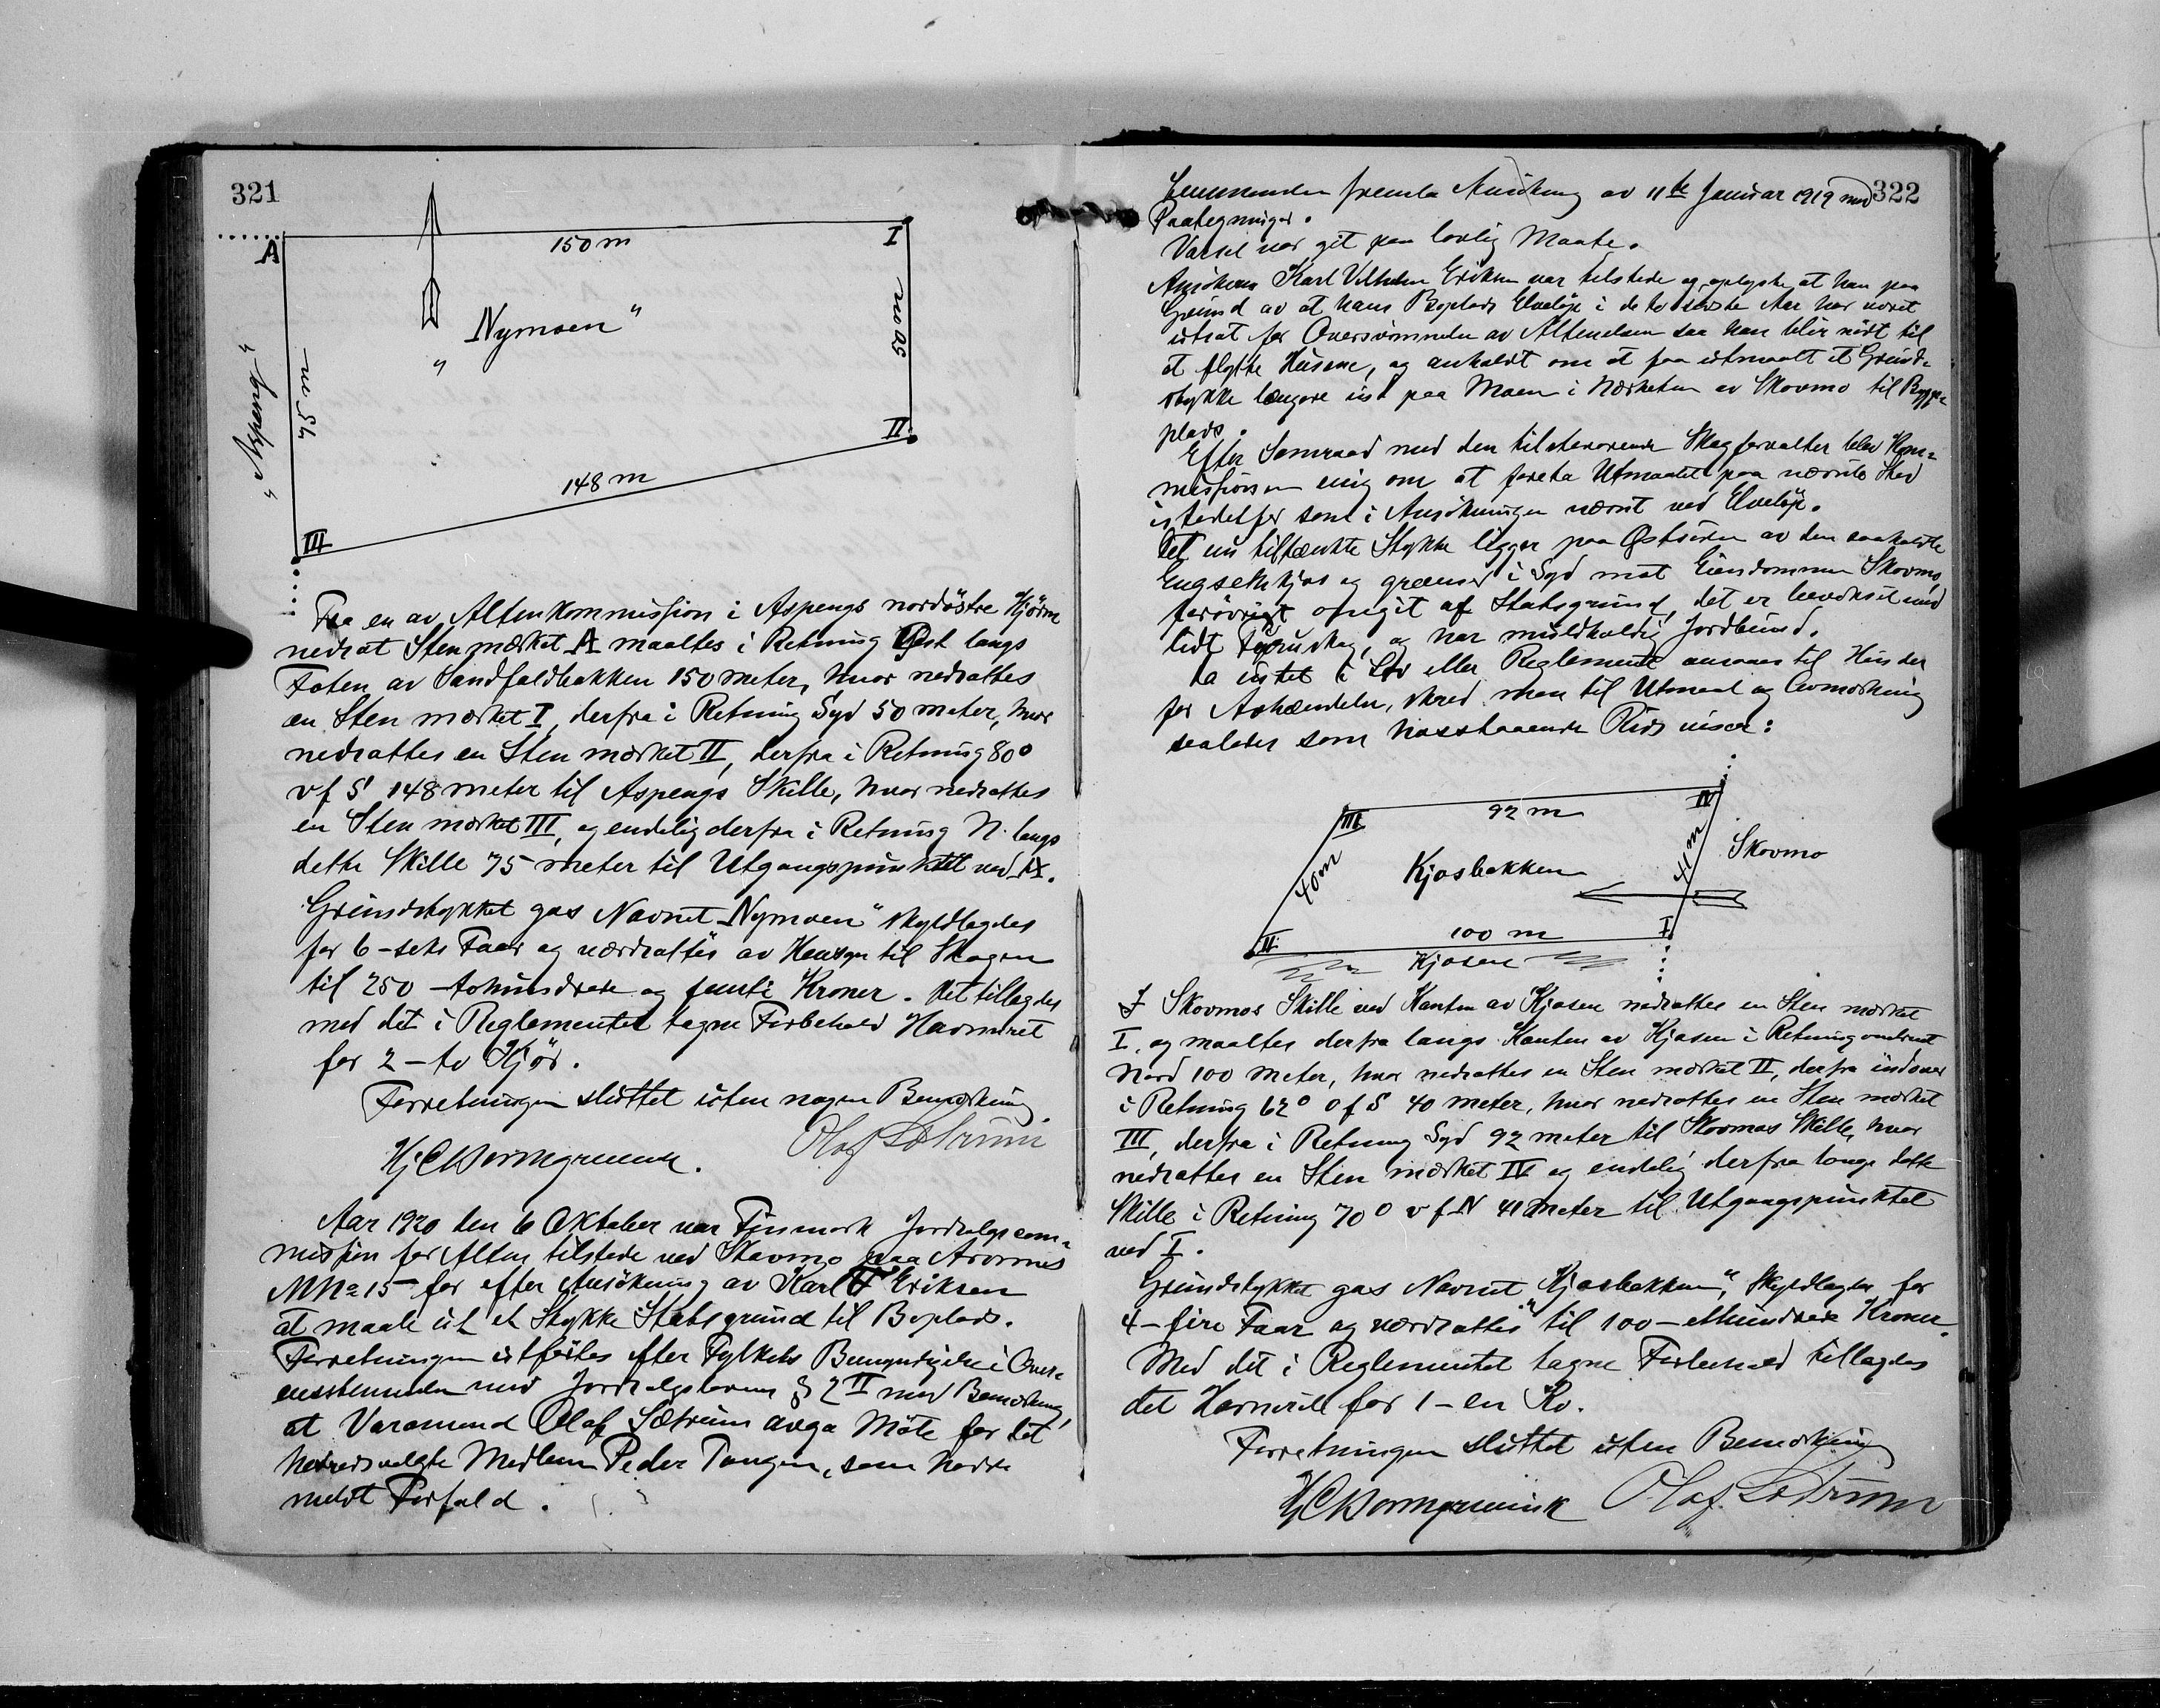 321
A
150 m
I
50 m
"Nymoen"
"Aspeng"
75 m
II
148 m
III
Fra en av Altenkommission i Aspengs nordöstre Hjörne
nedsat Sten mærket A maaltes i Retning Øst langs
Foten av Sandfaldbakken 150 meter, hvor nedsattes
en Sten mærket I, derfra i Retning Syd 50 meter, hvor
nedsattes en Sten mærket II, derfra i Retning 80°
v f S 148 meter til Aspengs Skille, hvor nedsattes
en Sten mærket III, og endelig derfra i Retning N. langs
dette Skille 75 meter til Utgangspunktet ved A.
Grundstykket gas Navnet "Nymoen" skyldlagdes
for 6 - seks Faar og værdsattes av Hensyn til Skogen
til 250 - tohundrede og femti Kroner. Det tillagdes
med det i Reglementet tagne Forbehold Havneret
for 2 - to Kjör.
Forretningen sluttet uten nogen Bemerkning.
Olaf Sætrum
Aar 1920 den 6 Oktober var Finmark Jordsalgscom=
mission for Alten tilstede ved Skovmo paa
MNo 15 for efter Ansökning av Karl V Eriksen
at maale ut et Stykke Statsgrund til Boplads.
Forretningen utförtes efter Fylkets Bemyndigelse i Over=
ensstemmelse med Jordsalgsloven § 2 II med Bemerkning,
at Varamand Olaf Sætrum avga Möte for det
herredsvalgte Medlem Peder Tangen, som havde
meldt Forfald.
322
fremla Ansökning av 11te Januar 1919 med
Paategninger.
Varsel var git paa lovlig Maate.
Ansökeren Karl Vilhelm Eriksen var tilstede og oplyste, at han paa
Grund av at hans Boplads Elvelöp i de to siste Aar har været
utsat for Oversvömmelse av Altenelven saa han blir nödt til
at flytte Husene, og anholdt om at faa utmaalt et Grund=
stykke længere ind paa Moen i Nærheten av Skovmo til Bygge=
plads.
Efter Samraad med den tilstedeværende Skogforvalter blev Kom=
missionen enig om at foreta Utmaalet paa nævnte Sted
istedetfor som i Ansökningen nævnt ved Elvelöp.
Det nu tiltænkte Stykke ligger paa Østsiden av den saakaldte
og grænser i Syd mot Eiendommen Skovmo,
forövrigt omgit af Statsgrund, det er bevokset med
lidt Furuskog, og har muldholdig Jordbund.
Da intet i Lov eller Reglement ansaaes til Hinder
for Avhændelse, skred man til Utmaal og Avmerkning
saaledes som hosstaaende Rids viser:
III
92 m
IV
40 m
Kjosbakken
41 m
Skovmo
II
100 m
I
Kjosen
I Skovmos Skille ved Kanten av Kjosen nedsattes en Sten mærket
I, og maaltes derfra langs Kanten av Kjosen i Retning omtrent
Nord 100 meter, hvor nedsattes en Sten mærket II, derfra indover
i Retning 62° o f S 40 meter, hvor nedsattes en Sten mærket
III, derfra i Retning Syd 92 meter til Skovmos Skille, hvor
nedsattes en Sten mærket IV og endelig derfra langs dette
Skille i Retning 70° v f N 41 meter til Utgangspunktet
ved I.
Grundstykket gas Navnet "Kjosbakken", Skyldlagdes for
4 - fire Faar og værdsattes til 100 - ethundrede Kroner.
Med det i Reglementet tagne Forbehold tillagdes
det Havneret for 1 - en Ko.
Forretningen sluttet uten Bemerkning
Olaf Sætrum